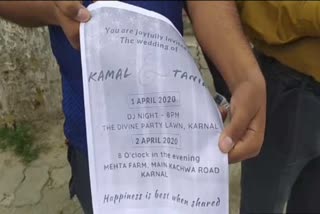 You are joyfully invited
The wedding of
KAMAL
1 APRIL 2020
DJ NIGHT - 8PM
THE DIVINE PARTY LAWN, KARNAL
2 APRIL 2020
8 O'clock in the evening
MEHTA FARM, MAIN KACHWA ROAD
KARNAL
Happiness is best when shared